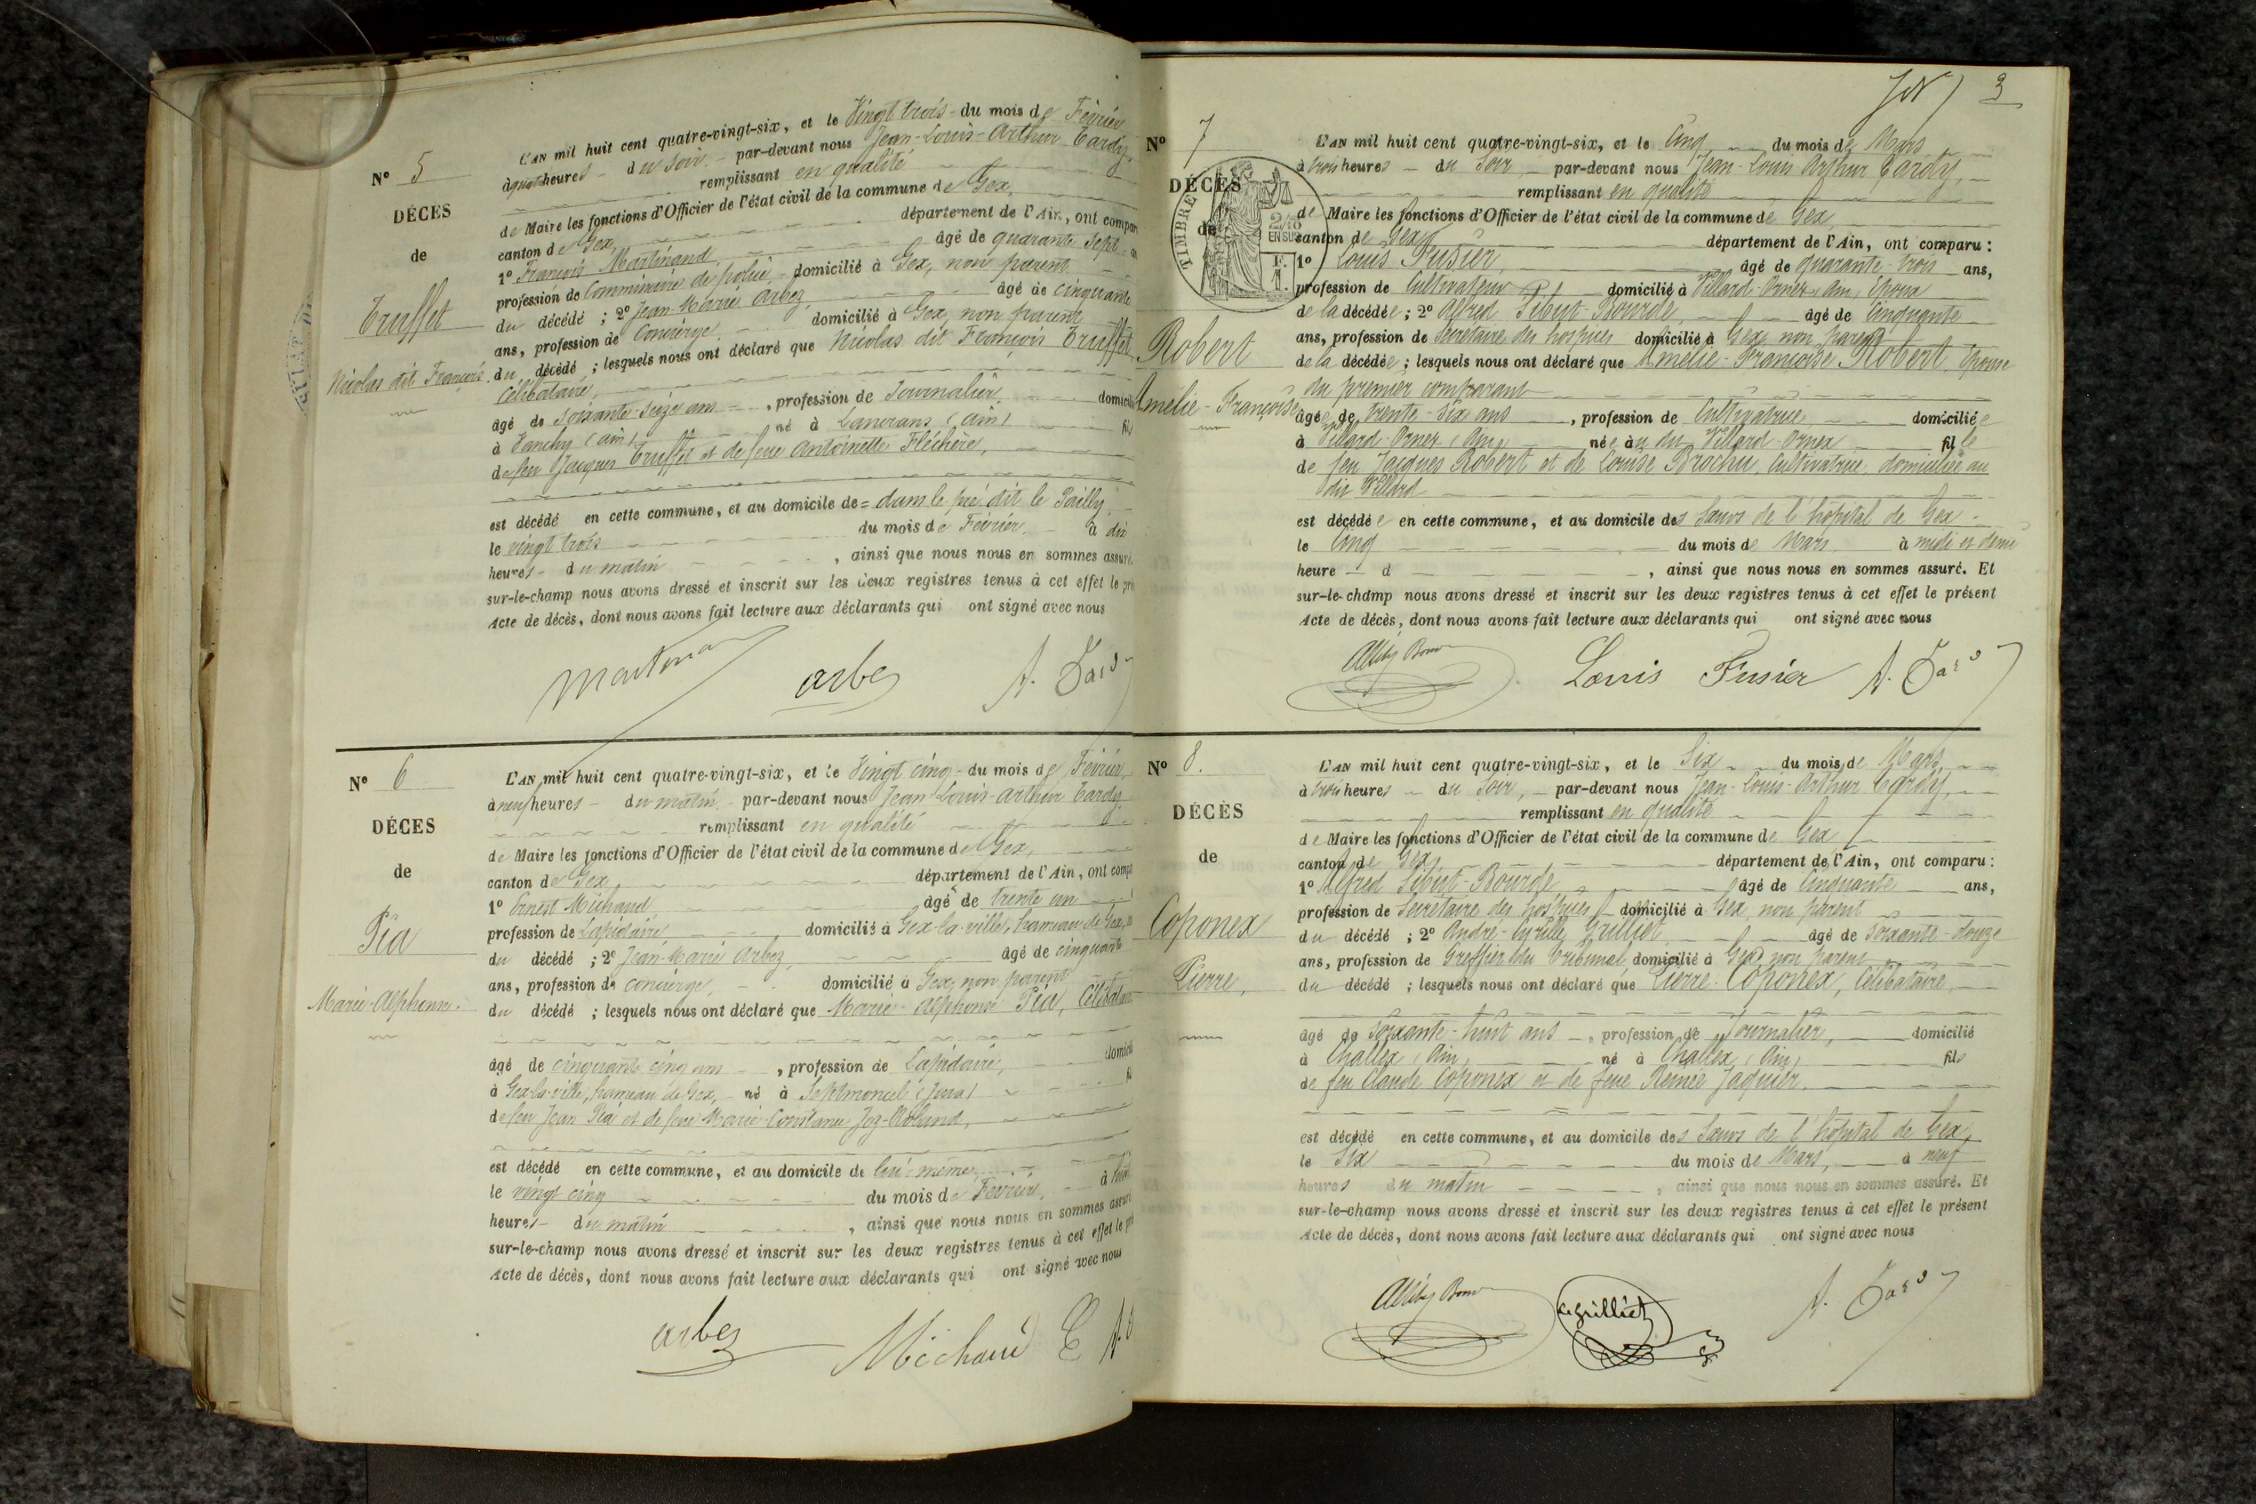 N° 5
DÉCES
de
Truffet
Nicolas dit François
L'AN mil huit cent quatre-vingt-six, et le Vingt trois du mois de Février
à quatre heures du soir par-devant nous Jean-Louis-Arthur Tardy,
remplissant en qualité
de Maire les fonctions d'Officier de l'état civil de la commune de Gex,
canton de Gex, département de l'Ain, ont compar
1° François Martinand, âgé de quarante sept
profession de Commissaire de police, domicilié à Gex, non parent
du décédé ; 2° Jean-Marie Arbez, âgé de cinquante
ans, profession de Concierge, domicilié à Gex, non parent
du décédé ; lesquels nous ont déclaré que Nicolas dit François Truffet
Célibataire,
âgé de soixante-seize ans, profession de Journalier, domicilié
à (Ain) né à Lancrans (Ain) fils
de feu Jacques Truffet et de feue Antoinette Fléchère,
est décédé en cette commune, et au domicile de = dans le pré dit le Pailly,
le vingt trois du mois de Février à dix
heures du matin, ainsi que nous nous en sommes assuré.
sur-le-champ nous avons dressé et inscrit sur les deux registres tenus à cet effet le pré
Acte de décès, dont nous avons fait lecture aux déclarants qui ont signé avec nous
Martinand arbez A. Tardy
N° 6
DÉCES
de
Pia
Marie-Alphonse.
L'AN mil huit cent quatre-vingt-six, et le Vingt cinq du mois de Février,
à neuf heures du matin par-devant nous Jean-Louis-Arthur Tardy
remplissant en qualité
de Maire les fonctions d'Officier de l'état civil de la commune de Gex,
canton de Gex, département de l'Ain, ont comp
1° Ernest Michaud, âgé de trente un
profession de Lapidaire, domicilié à Gex-la-ville, hameau de Gex,
du décédé ; 2° Jean-Marie Arbez, âgé de cinquante
ans, profession de concierge, domicilié à Gex, non parent
du décédé ; lesquels nous ont déclaré que Marie-Alphonse Pia, Célibataire
âgé de cinquante cinq ans, profession de Lapidaire, domicilié
à Gex-la-ville, hameau de Gex, né à Septmoncel (Jura) fi
de feu Jean Pia et de feue Marie-Constance Joz-Roland,
est décédé en cette commune, et au domicile de lui-même,
le vingt cinq du mois de Février, à huit
heures du matin, ainsi que nous nous en sommes assuré
sur-le-champ nous avons dressé et inscrit sur les deux registres tenus à cet effet le pré
Acte de décès, dont nous avons fait lecture aux déclarants qui ont signé avec nous
arbez Michaud E
3
N° 7
DÉCÈS
de
TIMBRE
2/10
EN SUS
Robert
Amélie-Françoise
L'AN mil huit cent quatre-vingt-six, et le Cinq du mois de Mars
à trois heures du Soir, par-devant nous Jean-Louis Arthur Tardy,
remplissant en qualité
de Maire les fonctions d'Officier de l'état civil de la commune de Gex,
canton de Gex, département de l'Ain, ont comparu :
1° Louis Fusier, âgé de quarante-trois ans,
profession de Cultivateur domicilié à Villard-Ornex, Ain, Epoux
de la décédée ; 2° Alfred Sibut-Bourde, âgé de Cinquante
ans, profession de Secrétaire des hospices domicilié à Gex, non parent
de la décédée ; lesquels nous ont déclaré que Amélie-Françoise Robert, Epouse
du premier comparant
âgée de trente-six ans, profession de Cultivatrice domiciliée
à Villard-Ornex (Ain) née àu dit Villard-Ornex fille
de feu Jacques Robert et de Louise Brochu, Cultivatrice, domiciliée au
dit Villard
est décédée en cette commune, et au domicile des Sœurs de l'hôpital de Gex
le Cinq du mois de Mars à midi et demi
heure d , ainsi que nous nous en sommes assuré. Et
sur-le-champ nous avons dressé et inscrit sur les deux registres tenus à cet effet le présent
Acte de décès, dont nous avons fait lecture aux déclarants qui ont signé avec nous
Louis Fusier A. Tardy
N° 8.
DÉCÈS
de
Coponex
Pierre,
L'AN mil huit cent quatre-vingt-six, et le Six du mois de Mars,
à trois heures du Soir, par-devant nous Jean-Louis-Arthur Tardy,
remplissant en qualité
de Maire les fonctions d'Officier de l'état civil de la commune de Gex
canton de Gex, département de l'Ain, ont comparu :
1° Alfred Sibut-Bourde, âgé de Cinquante ans,
profession de Secrétaire des hospices domicilié à Gex, non parent
du décédé ; 2° André-Cyrille Grilliet âgé de Soixante-douze
ans, profession de Greffier du tribunal, domicilié à Gex, non parent
du décédé ; lesquels nous ont déclaré que Pierre Coponex, Célibataire,
âgé de Soixante-huit ans, profession de Journalier, domicilié
à Challex, Ain, né à Challex, Ain, fils
de feu Claude Coponex et de feue Renée Jaquier,
est décédé en cette commune, et au domicile des Sœurs de l'hôpital de Gex,
le Six du mois de Mars, à neuf
heures du matin, ainsi que nous nous en sommes assuré. Et
sur-le-champ nous avons dressé et inscrit sur les deux registres tenus à cet effet le présent
Acte de décès, dont nous avons fait lecture aux déclarants qui ont signé avec nous
Grilliet A. Tardy